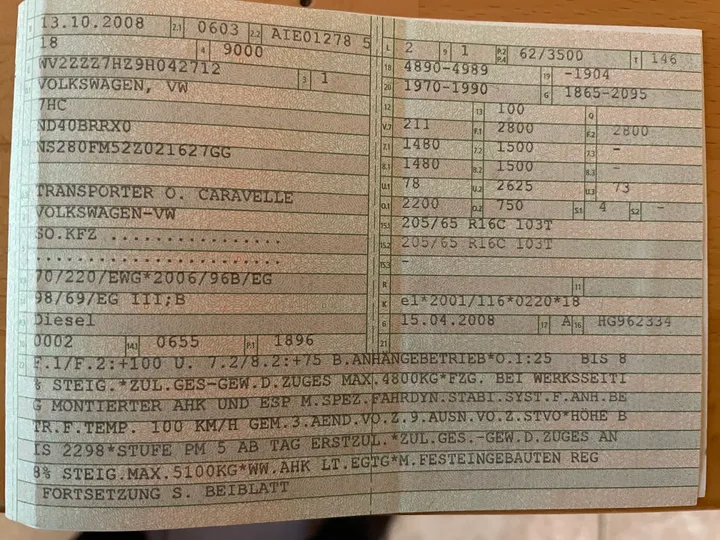 13.10.2008 2.1 0603 2.2 AIE01278 5
18 4 9000
WV2ZZZ7HZ9H042712 3 1
VOLKSWAGEN, VW
7HC
ND40BRRX0
NS280FM52Z021627GG
TRANSPORTER O. CARAVELLE
VOLKSWAGEN-VW
SO.KFZ ................
.........................
70/220/EWG*2006/96B/EG
98/69/EG III;B
Diesel
0002 14.1 0655 P.1 1896
L 2 9 1 P.2 P.4 62/3500 T 146
18 4890-4989 19 -1904
20 1970-1990 G 1865-2095
12 13 100 Q
V.7 211 F.1 2800 F.2 2800
7.1 1480 7.2 1500 7.3 -
8.1 1480 8.2 1500 8.3 -
U.1 78 U.2 2625 U.3 73
O.1 2200 O.2 750 S.1 4 S.2 -
15.1 205/65 R16C 103T
15.2 205/65 R16C 103T
15.3 -
R 11
K e1*2001/116*0220*18
6 15.04.2008 17 A 16 HG962334
21
F.1/F.2:+100 U. 7.2/8.2:+75 B.ANHÄNGEBETRIEB*O.1:25 BIS 8
% STEIG.*ZUL.GES-GEW.D.ZUGES MAX.4800KG*FZG. BEI WERKSSEITI
G MONTIERTER AHK UND ESP M.SPEZ.FAHRDYN.STABI.SYST.F.ANH.BE
TR.F.TEMP. 100 KM/H GEM.3.AEND.VO.Z.9.AUSN.VO.Z.STVO*HÖHE B
IS 2298*STUFE PM 5 AB TAG ERSTZUL.*ZUL.GES.-GEW.D.ZUGES AN
8% STEIG.MAX.5100KG*WW.AHK LT.EGTG*M.FESTEINGEBAUTEN REG
FORTSETZUNG S. BEIBLATT